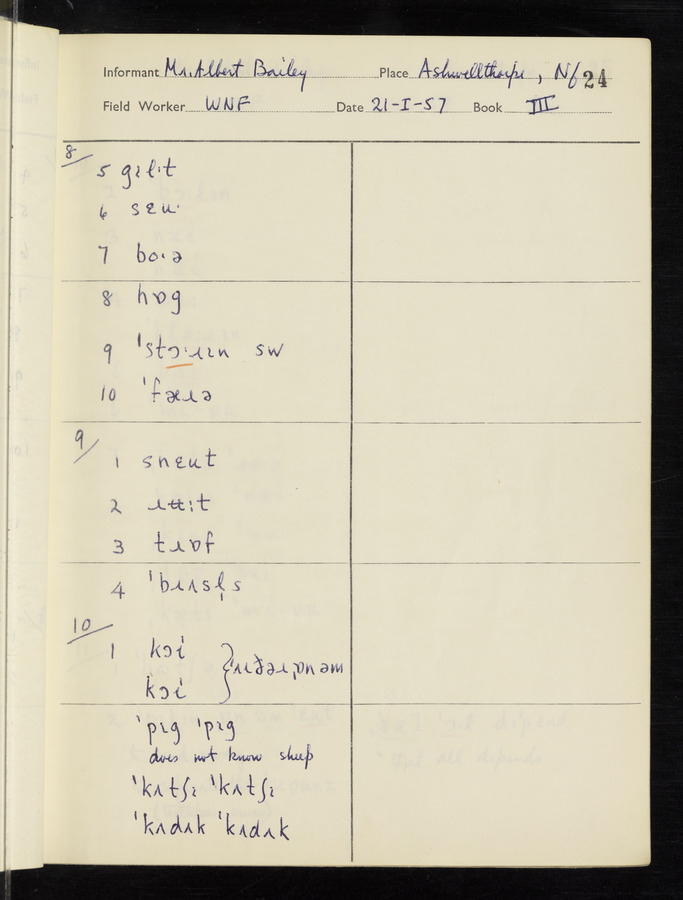 Informant Mr. Albert Bailey Place Ashwellthorpe, Nf 24
Field Worker WNF Date 21-I-57 Book III
8/
5 gɪɫ·t
6 sɛu·
7 bo·ə
8 hɒg
9 ˈstɔ·ɹɪn sw
10 ˈfæɹə
9/
1 snɛut
2 ɹʉ:t
3 tɹɒf
4 ˈbɹʌsl̩s
10/
1 kɔi
kɔi
ˈpɪg ˈpɪg
does not know sheep
ˈkʌtʃɪ ˈkʌtʃɪ
ˈkʌdʌk ˈkʌdʌk